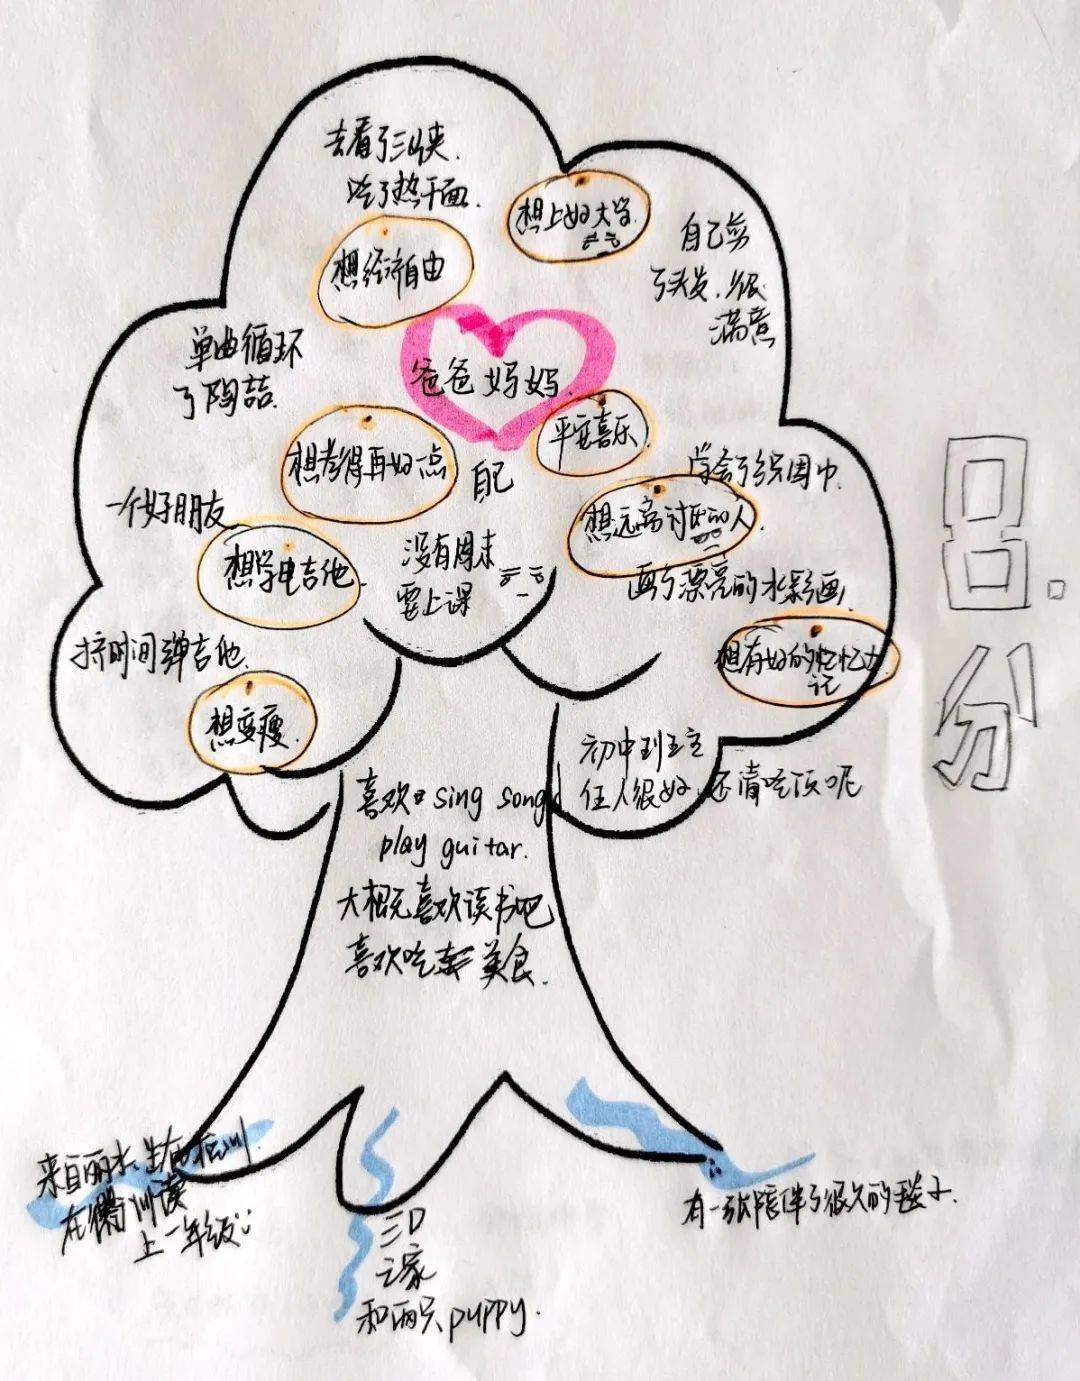 去看了三峡.
吃了热干面.
想上好大学.
自己剪
了头发,很
满意
想经济自由
单曲循环
了陶喆.
爸爸妈妈.
平安喜乐.
想考得再好一点
自己
学会了织围巾.
一个好朋友
想远离讨厌的人.
想学电吉他.
没有周末
要上课
画了漂亮的水彩画,
挤时间弹吉他.
想有好的忆忆力
记
想变瘦.
初中班主
任人很好,还请吃饭呢
喜欢 sing song
play guitar.
大概无喜欢读书吧
喜欢吃 美食.
吕.
分
来自丽水,生在
在 川
上一年级
有一张陪伴了很久的毯子.
三口
之家
和两只puppy.